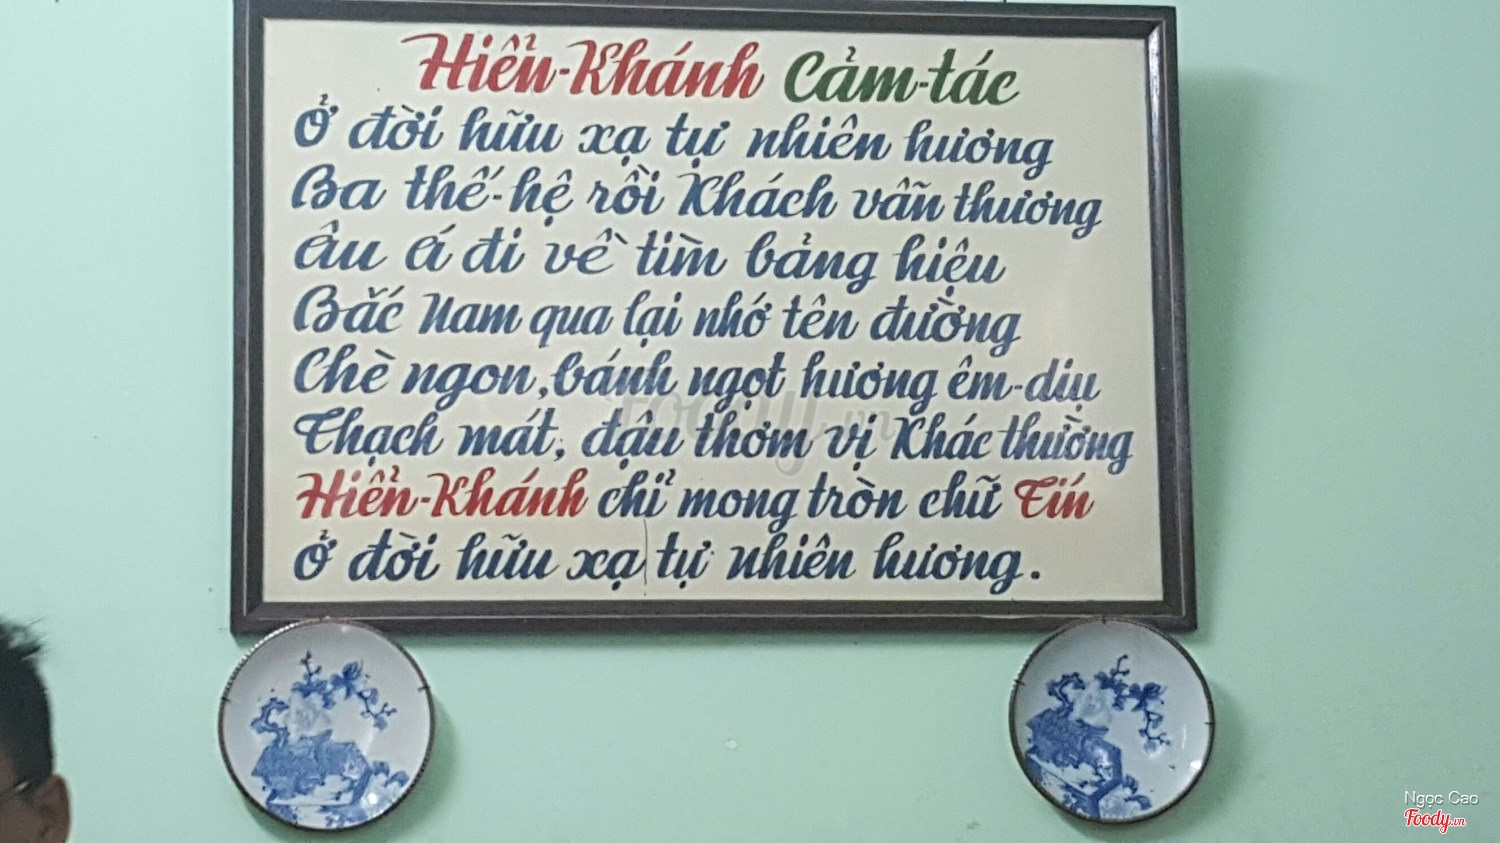 Hiển-Khánh Cảm-tác
Ở đời hữu xạ tự nhiên hương
Ba thế-hệ rồi Khách vẫn thương
Âu Á đi về tìm bảng hiệu
Bắc Nam qua lại nhớ tên đường
Chè ngon, bánh ngọt hương êm-dịu
Thạch mát, đậu thơm vị Khác thường
Hiển-Khánh chỉ mong tròn chữ Tín
Ở đời hữu xạ tự nhiên hương.
Foody.vn
Ngọc Cao
Foody.vn